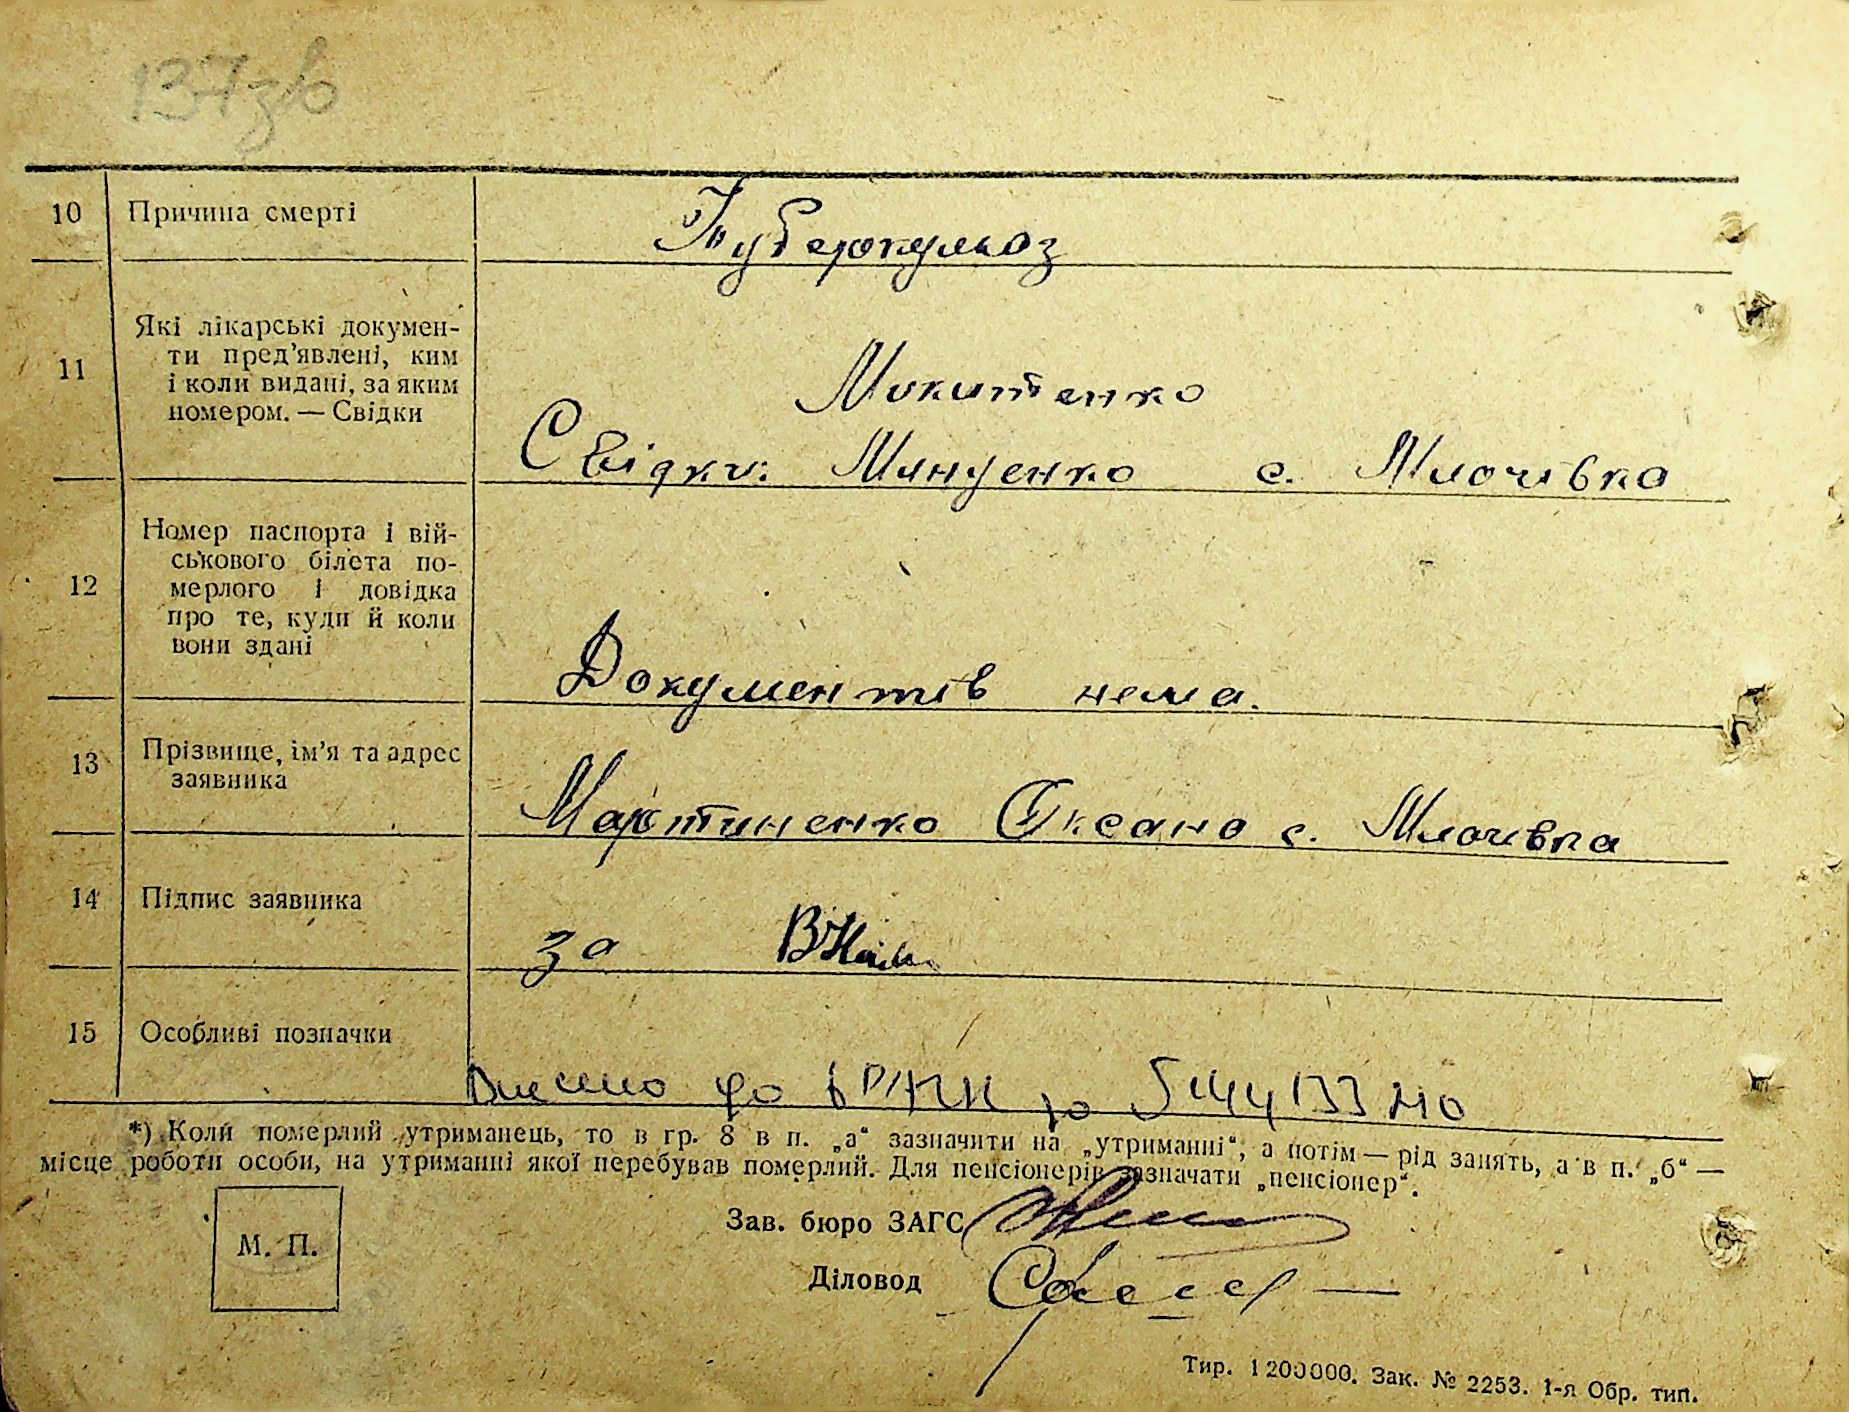 137зв
10 Причина смерті Туберкульоз
11 Які лікарські докумен-
ти пред’явлені, ким
і коли видані, за яким
номером. — Свідки
Микитенко
Свідки: с. Млочівка
12 Номер паспорта і вій-
ськового білета по-
мерлого і довідка
про те, куди й коли
вони здані
Документів нема.
13 Прізвище, ім’я та адрес
заявника
Мартиненко Оксана с. Млочівка
14 Підпис заявника
за
15 Особливі позначки
Внесено до за
*) Коли померлий утриманець, то в гр. 8 в п. „а“ зазначити на „утриманні“, а потім — рід занять, а в п. „б“ —
місце роботи особи, на утриманні якої перебував померлий. Для пенсіонерів зазначати „пенсіонер“.
М. П.
Зав. бюро ЗАГС
Діловод
Тир. 1200000. Зак. № 2253. 1-я Обр. тип.